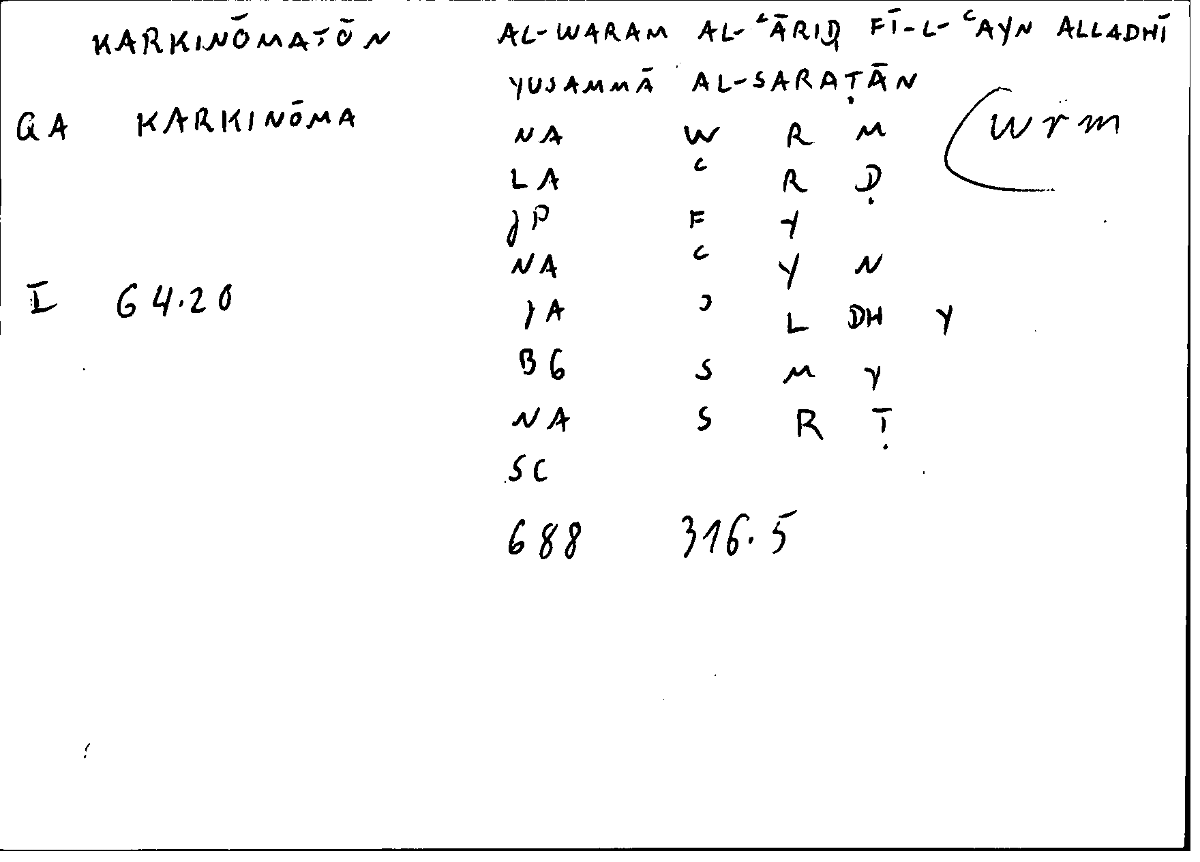 KARKINŌMATŌN AL-WARAM AL-ʿĀRIḌ FĪ-L-ʿAYN ALLADHĪ
YUSAMMĀ AL-SARAṬĀN
QA KARKINŌMA NA W R M wrm
LA ʿ R Ḍ
JP F Y
NA ʿ Y N
I 64.20 JA ʾ L DH Y
BG S M Y
NA S R Ṭ
SC
688 316.5